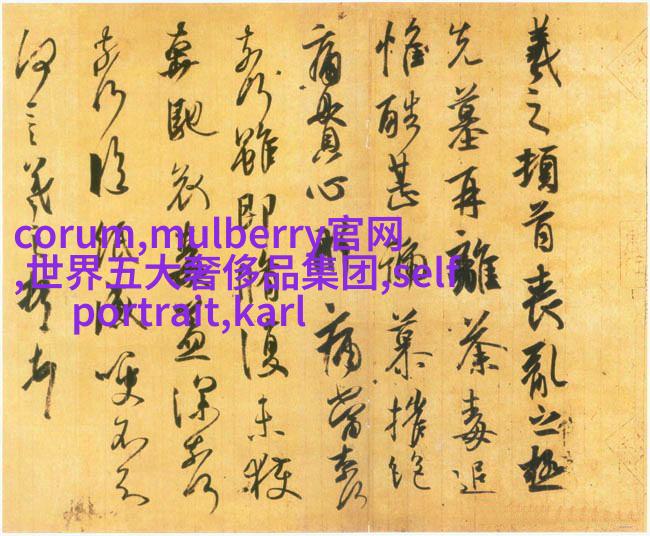 羲之頓首喪亂之極
先墓再離荼毒追
惟酷甚號慕摧絕
痛貫心痛當奈何
奈何雖即脩復未獲
奔馳哀毒益深奈何
奈何臨紙感哽不知
何言羲之頓首
corum,mulberry官网
,世界五大奢侈品集团,self
portrait,karl